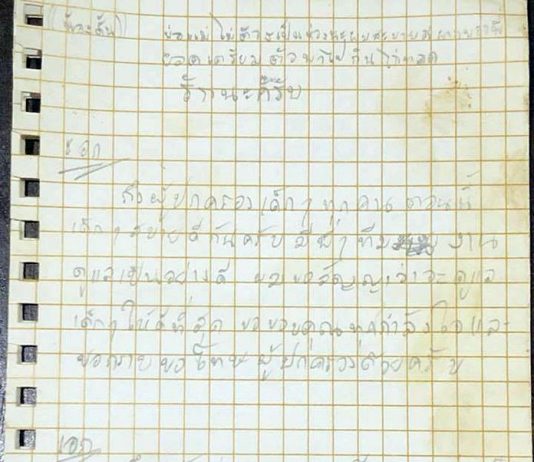 พ่อแม่ไม่ต้อง
ยอดเตรียมตัวพาไปกินไก่ทอด
รักนะครับ
เอก
ถึงผู้ปกครองเด็กๆ ทุกคน ตอนนี้
เด็กๆ สบายดีกันครับ มีพี่ๆ ทีม งาน
ดูแลเป็นอย่างดี ผมขอสัญญาว่าจะดูแล
เด็กๆ ให้ดีที่สุด ขอบคุณทุกกำลังใจและ
ขอกราบขอโทษผู้ปกครองด้วยครับ
เอก